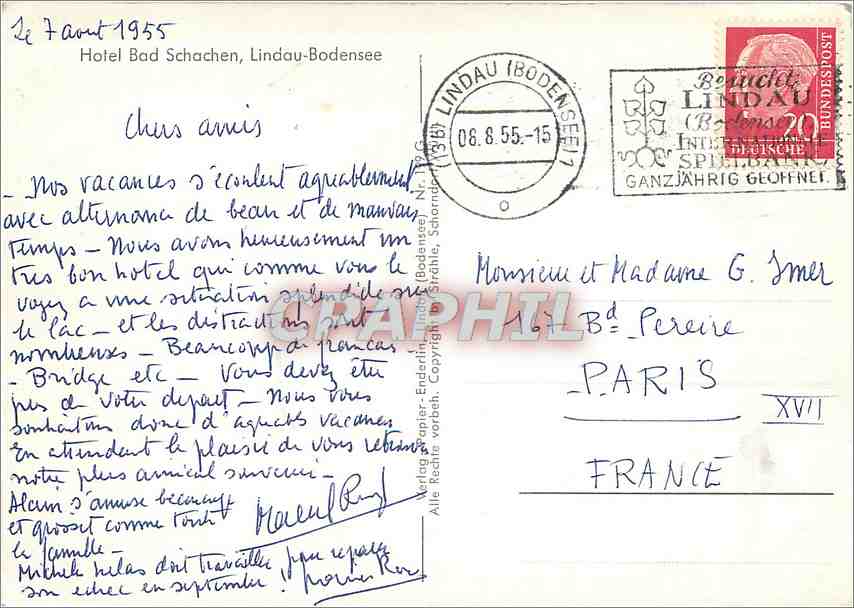 Le 7 aout 1955
Hotel Bad Schachen, Lindau-Bodensee
Chers amis
- Nos vacances s'écoulent agreablement
avec alternance de beau et de mauvais
temps - Nous avons heureusement un
tres bon hotel qui comme vous le
voyez a une situation splendide sur
le lac - et les distractions sont
nombreuses - Beaucoup de francais -
- Bridge etc - Vous devez être
pres de votre depart - Nous vous
souhaitons donc d'agreables vacances
En attendant le plaisir de vous retrouver
notre plus amical souvenir -
Alain s'amuse beaucoup
et grossit comme toute
la famille -
Michele helas doit travailler pour reparer
son echec en septembre !
Verlag Papier-Enderlin, Lindau (Bodensee) Nr. 119 G
Alle Rechte vorbeh. Copyright by Strähle, Schorndorf
LINDAU (BODENSEE) 1
(13b)
08.8.55.-15
o
Besucht
LINDAU
(Bodensee)
INTERNATIONALE
SPIELBANK
GANZJÄHRIG GEÖFFNET.
20
DEUTSCHE
BUNDESPOST
Monsieur et Madame G. Imer
167 Bd Pereire
PARIS
XVII
FRANCE
CPAPHIL